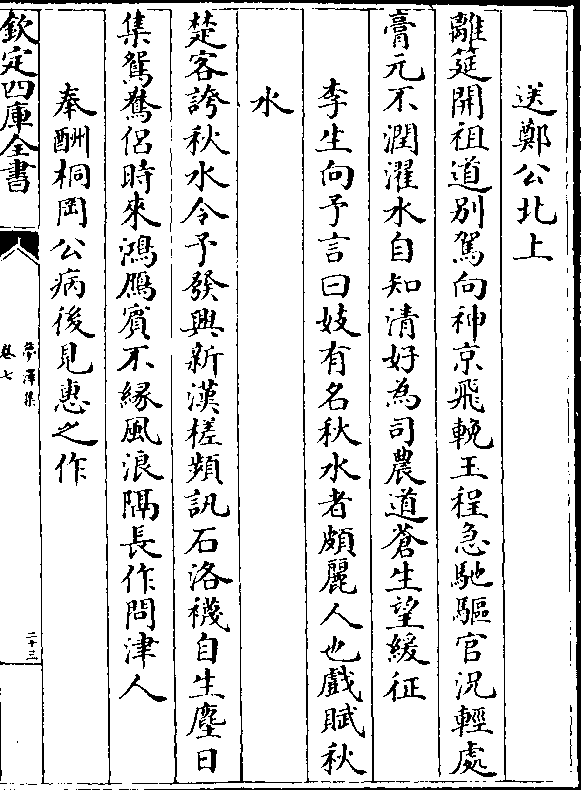 送鄭公北上
離筵開祖道别駕向神京飛輓王程急馳驅官況輕處
膏元不潤濯水自知清好為司農道蒼生望緩征
李生向予言曰妓有名秋水者頗麗人也戲賦秋
水
楚客誇秋水令予發興新漢槎頻訊石洛襪自生塵日
集鴛鴦侣時來鴻鴈賓不緣風浪隔長作問津人
奉酬桐岡公病後見惠之作
欽定四庫全書
夢澤集
卷七
二十三